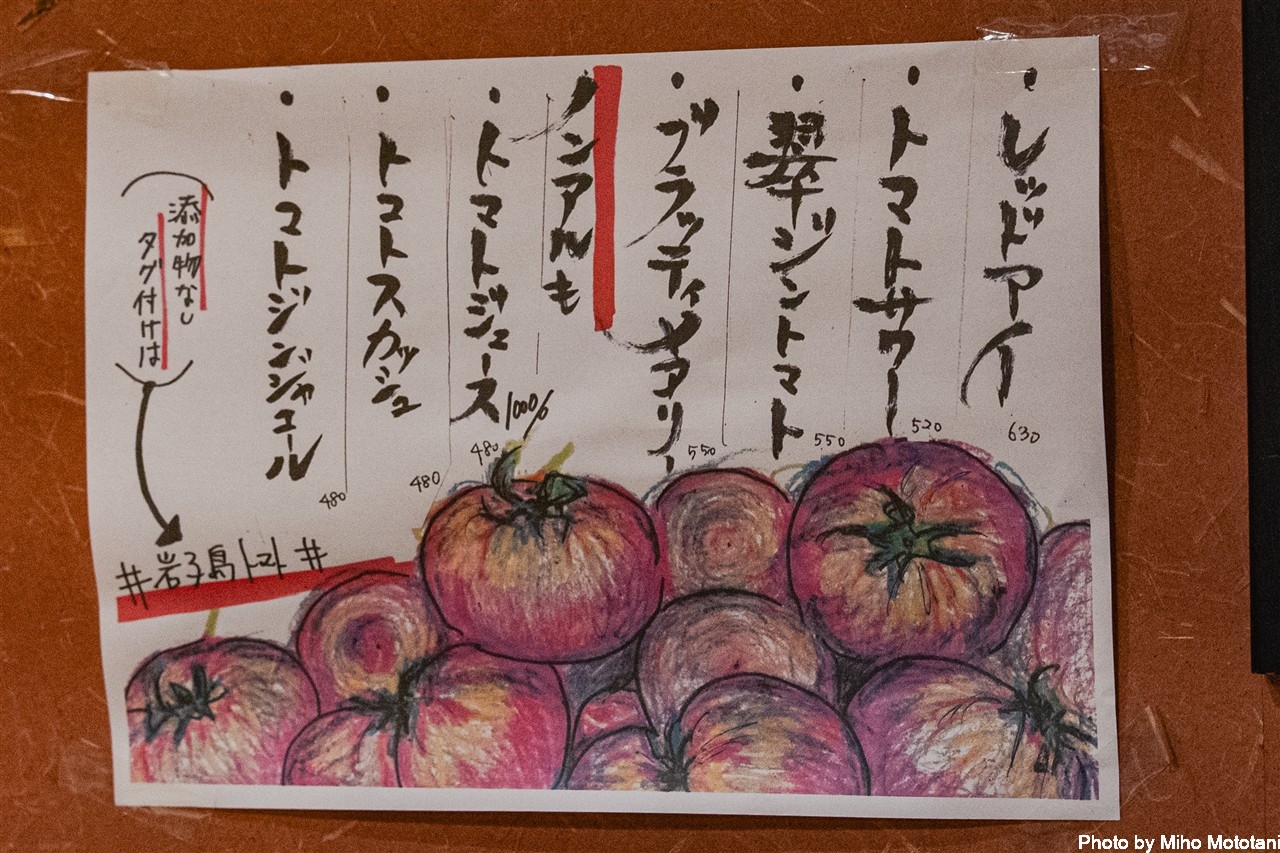 ・レッドアイ 630
・トマトサワー 520
・翠ジントマト 550
・ブラッティメアリー 550
ノンアルも
・トマトジュース 100% 480
・トマトスカッシュ 480
・トマトジンジャエール 480
(添加物なし
タグ付けは)
#岩子島トマト#
Photo by Miho Mototani